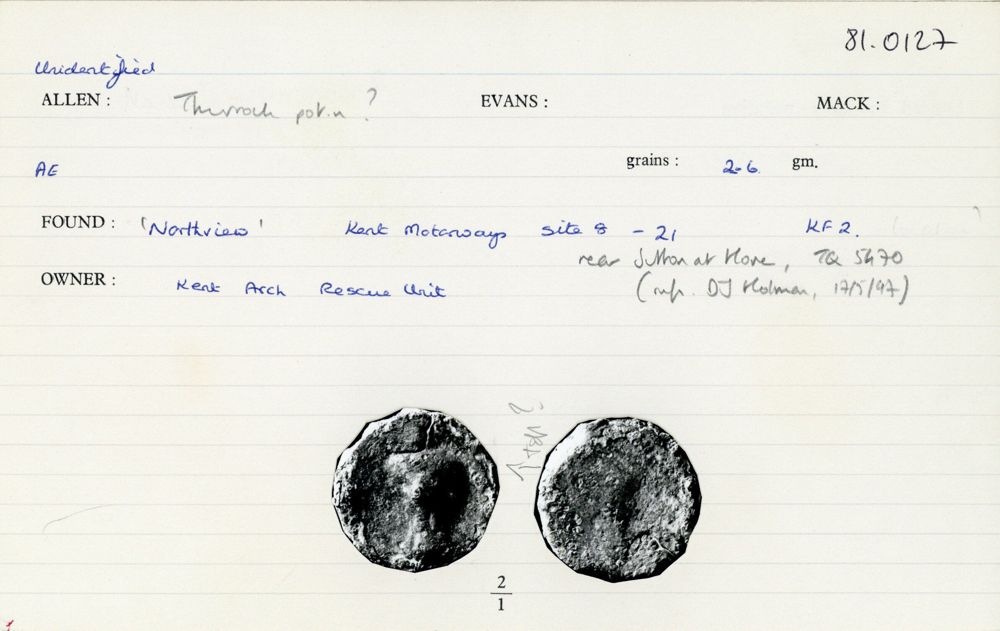 81.0127
Unidentified
ALLEN : Thurrock potin ? EVANS : MACK :
AE grains : 2.6 gm.
FOUND : 'Northview' Kent Motorways site 8 - 21 KF 2.
near Sutton at Hone, TQ 5470
OWNER : Kent Arch Rescue Unit (inf. DJ Holman, 17/5/97)
↑ ?
2
1